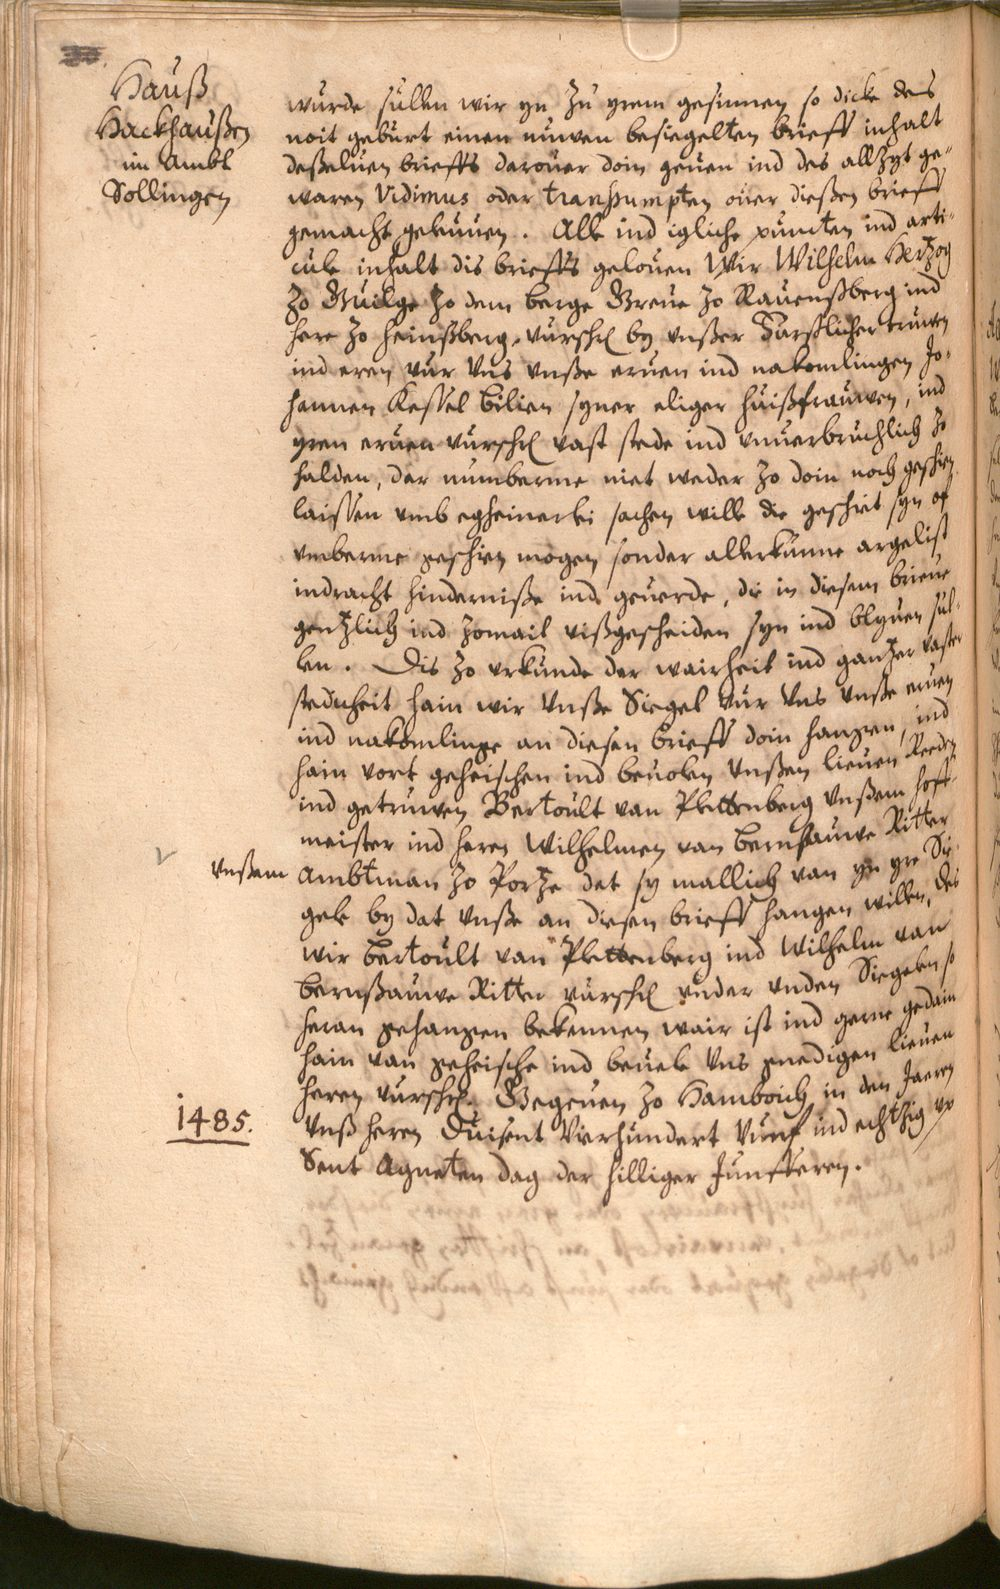 Hauß
Hackhaußen
im Ambt
Sollingen
wurde sullen wir yn zu yrem gesinnen so dicke des
noit geburt einen nuwen besiegelten brieff inhalt
deßeluen brieffs darouer doin geuen ind des allzyt ge=
waren Vidimus oder transsumpten ouer dießen brieff
gemacht gelouuen. Alle ind igliche puncten ind arti=
cule inhalt dis brieffs gelouen Wir Wilhelm Hertzog
zo Guilge zo dem berge Greue zo Rauenßberg ind
here zo Heinßberg vurschr by vnßer Furstlicher truwen
ind eren vur Vns vnße eruen ind nakomlingen Jo=
hannen Kessel bilien syner eliger huißfrauwen, ind
yren eruen vurschr vast stede ind vnuerbruchlich zo
halden, dar numberme niet weder zo doin noch geschien
laissen vmb egheinerlei sachen wille die geschiet syn of
vmberme geschien mogen sonder allerkunne argelist
indracht hinderniße ind geuerde, die in diesem brieue
gentzlich ind zomail vißgescheiden syn ind blyuen sul=
len. Dis zo vrkunde der wairheit ind gantzer vaster
stedicheit hain wir vnße Siegel vur Vns vnße eruen
ind nakomlinge an diesen brieff doin hangen, ind
hain vort geheischen ind beuolen vnßen lieuen Reeden
ind getruwen Bertoult van Plettenberg vnßem hoff=
meister ind heren Wilhelmen van bernsauwe Ritter
vnßem Ambtman zo Portze dat sy mallich van yn yre Sie=
gele by dat vnße an diesen brieff hangen willen, des
wir bertoult van Plettenberg ind Wilhelm van
bernßauwe Ritter vurschr vnder vnden Siegelen so
heran gehangen bekennen wair ist ind gerne gedain
hain van geheische ind beuele Vns gnedigen lieuen
heren vurschr. Gegeuen zo Hamboich in den Jaeren
1485.
Vnß heren Duisent Vierhundert Vunf ind echtzig vp
Sent Agneten dag der hilliger Junfferen.